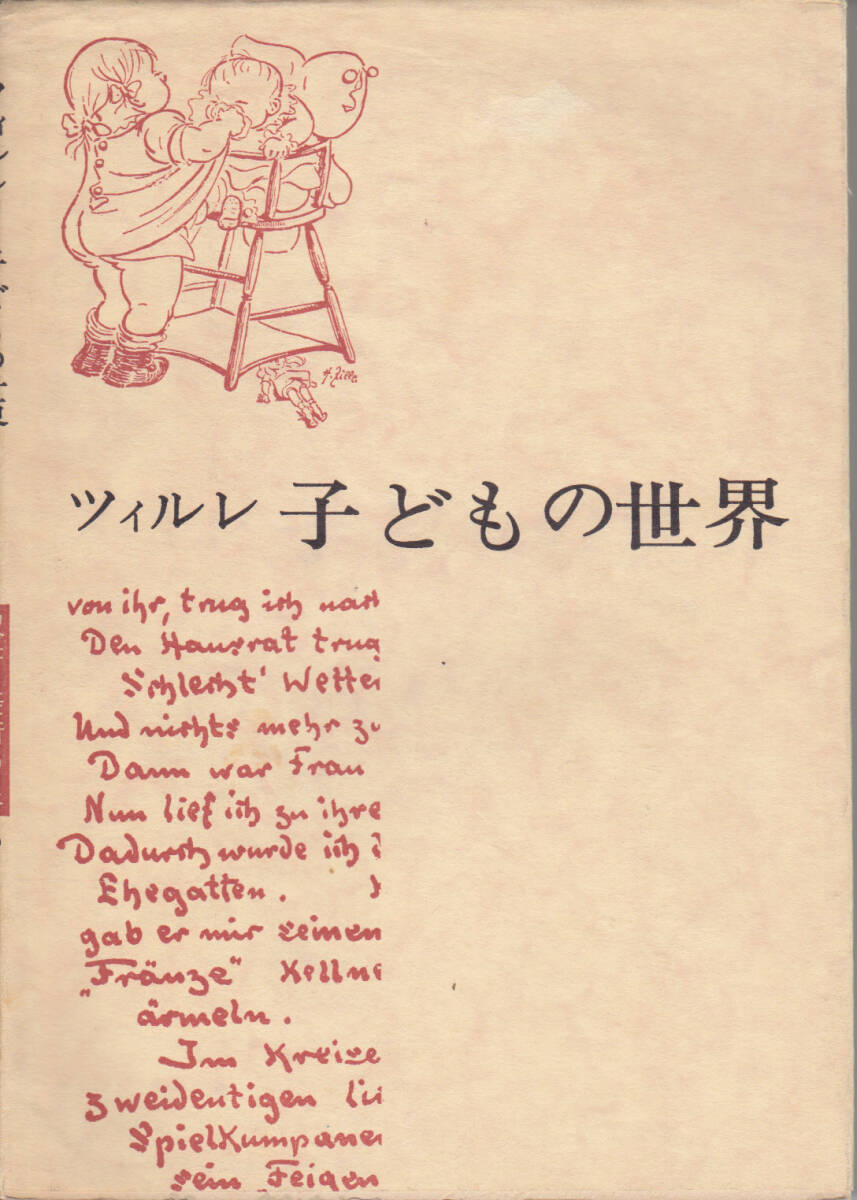 H. Zille
ツィルレ 子どもの世界
von ihr, trug ich
Den Hausrat trug
Schlecht' Wetter
Und nichts mehr zu
Dann war Frau
Nun lief ich zu ihre
Dadurch wurde ich
Ehegatten.
gab er mir seinen
„Fränze“ Kellne
ärmeln.
Im Kreise
zweideutigen
Spielkumpane
sein Feigen